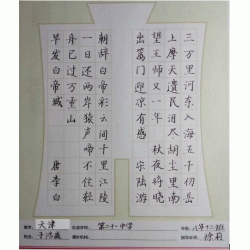 三万里河东入海五千仞岳
上摩天遗民泪尽胡尘里南
望王师又一年 秋夜将晓
出篱门迎凉有感 宋陆游
朝辞白帝彩云间千里江陵
一日还两岸猿声啼不住轻
舟已过万重山
早发白帝城 唐李白
天津 第二十一中学 八年十二班
徐莉